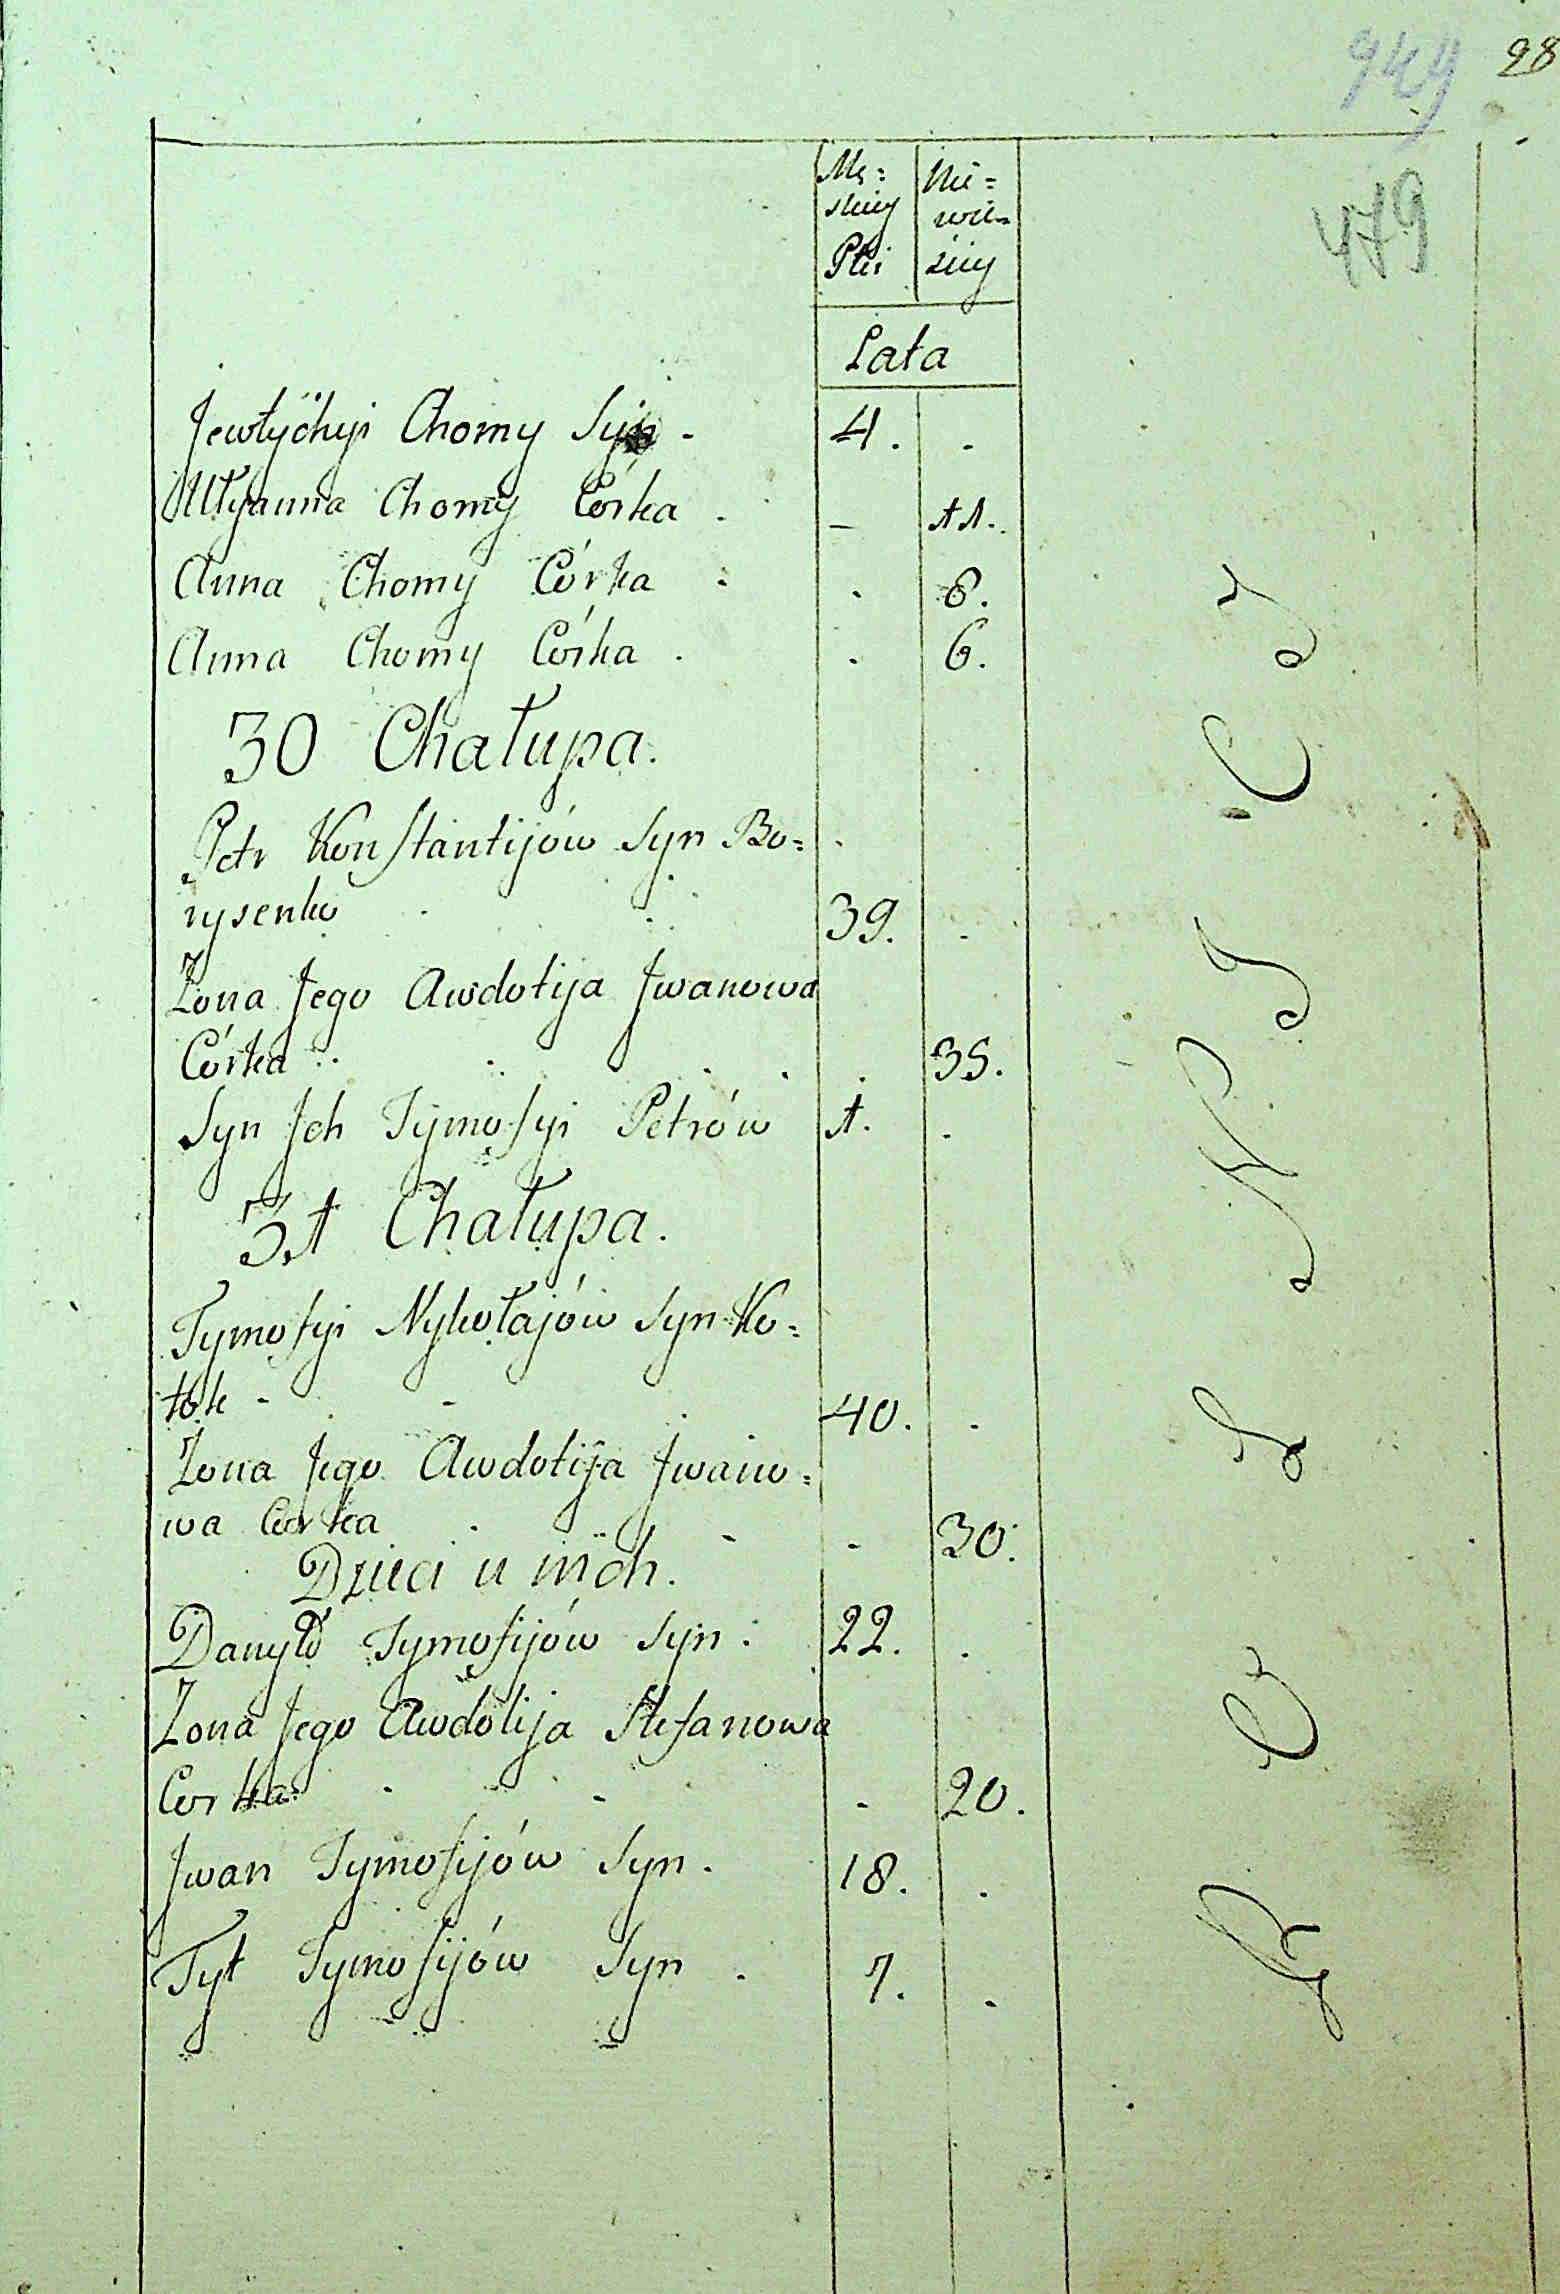 944 98
479
Mę= Nie=
skiey wie=
Płci ściey
Lata
Jewtychyi Chomy Syn - 4. -
Ullyanna Chomy Córka . - 11.
Anna Chomy Córka . . 8.
Anna Chomy Córka . . 6.
30 Chałupa.
Petr Konstantijów Syn Bo=
rysenko 39. .
Żona Jego Awdotija Jwanowa
Córka . 35.
Syn Jch Tymofyi Petrów 1. .
31 Chałupa.
Tymofyi Nykołajów Syn Ko=
tok - 40. .
Żona Jego Awdotija Jwano=
wa Corka - 30.
Dzieci u nich.
Danyło Tymofijów Syn . 22. .
Żona Jego Awdotija Stefanowa
Corka - 20.
Jwan Tymofijów Syn . 18. .
Tyt Tymofijów Syn . 7. .